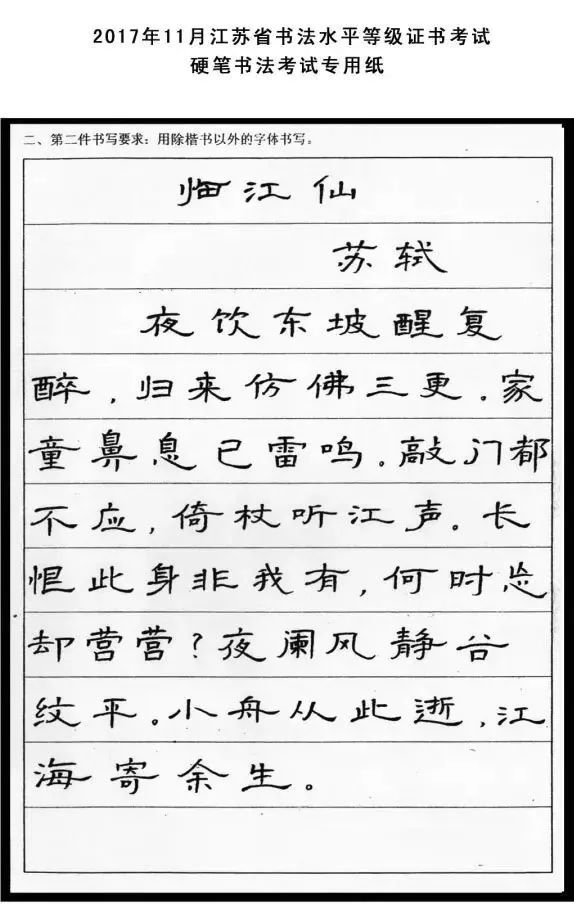 2017年11月江苏省书法水平等级证书考试
硬笔书法考试专用纸
二、第二件书写要求：用除楷书以外的字体书写。
临江仙
苏轼
夜饮东坡醒复
醉，归来仿佛三更。家
童鼻息已雷鸣。敲门都
不应，倚杖听江声。长
恨此身非我有，何时忘
却营营？夜阑风静谷
纹平。小舟从此逝，江
海寄余生。